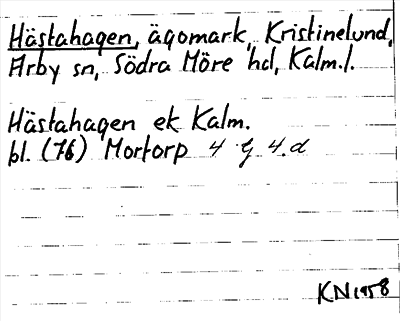 Hästahagen, ägomark, Kristinelund,
Arby sn, Södra Möre hd, Kalm.l.
Hästahagen ek Kalm.
bl. (76) Mortorp 4 G 4.d
KN 1958